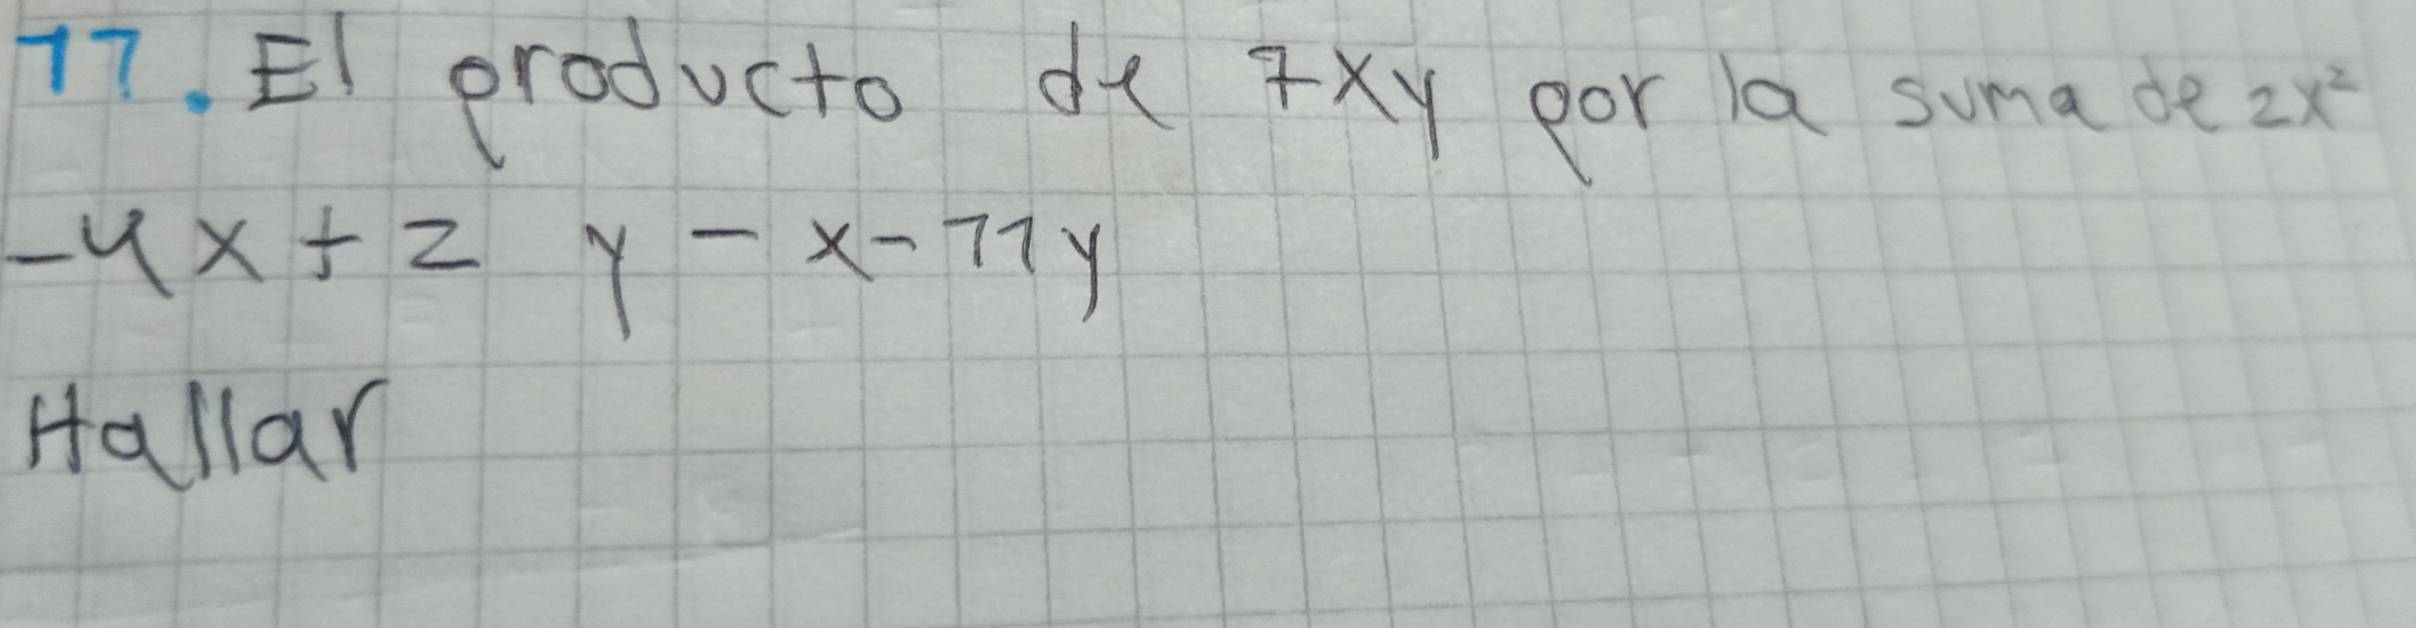 11. El producto de 7xy por la suma de 2x²
-4x + 2 y - x - 11y
Hallar